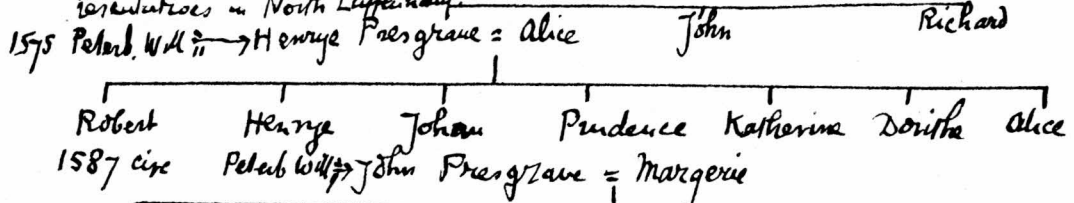 in North Luffenham.
1575 Peterb. Will → Henrye Presgrave = Alice John Richard
Robert Henrye Johan Prudence Katherine Doritha Alice
1587 circ Peterb Will → John Presgrave = Margerie